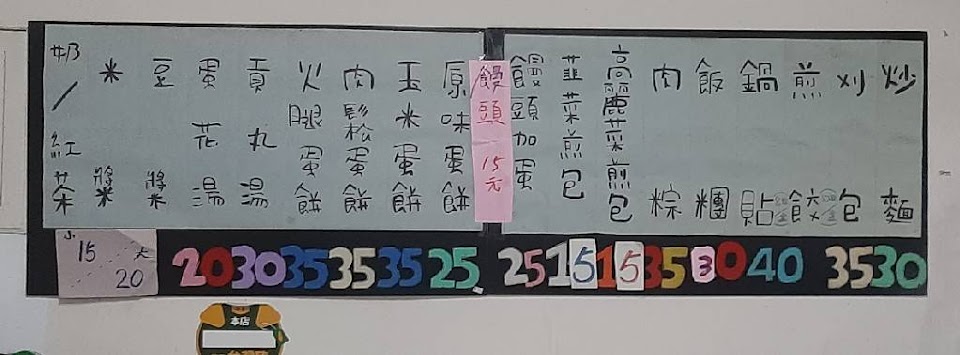 炒麵
刈包
煎餃
鍋貼
飯糰
肉粽
高麗菜煎包
韮菜煎包
饅頭加蛋
饅頭 15元
原味蛋餅
玉米蛋餅
肉鬆蛋餅
火腿蛋餅
貢丸湯
蛋花湯
豆漿
米漿
奶/紅茶
小 15 大 20
20 30 35 35 35 25 25 15 15 35 30 40 35 30
本店